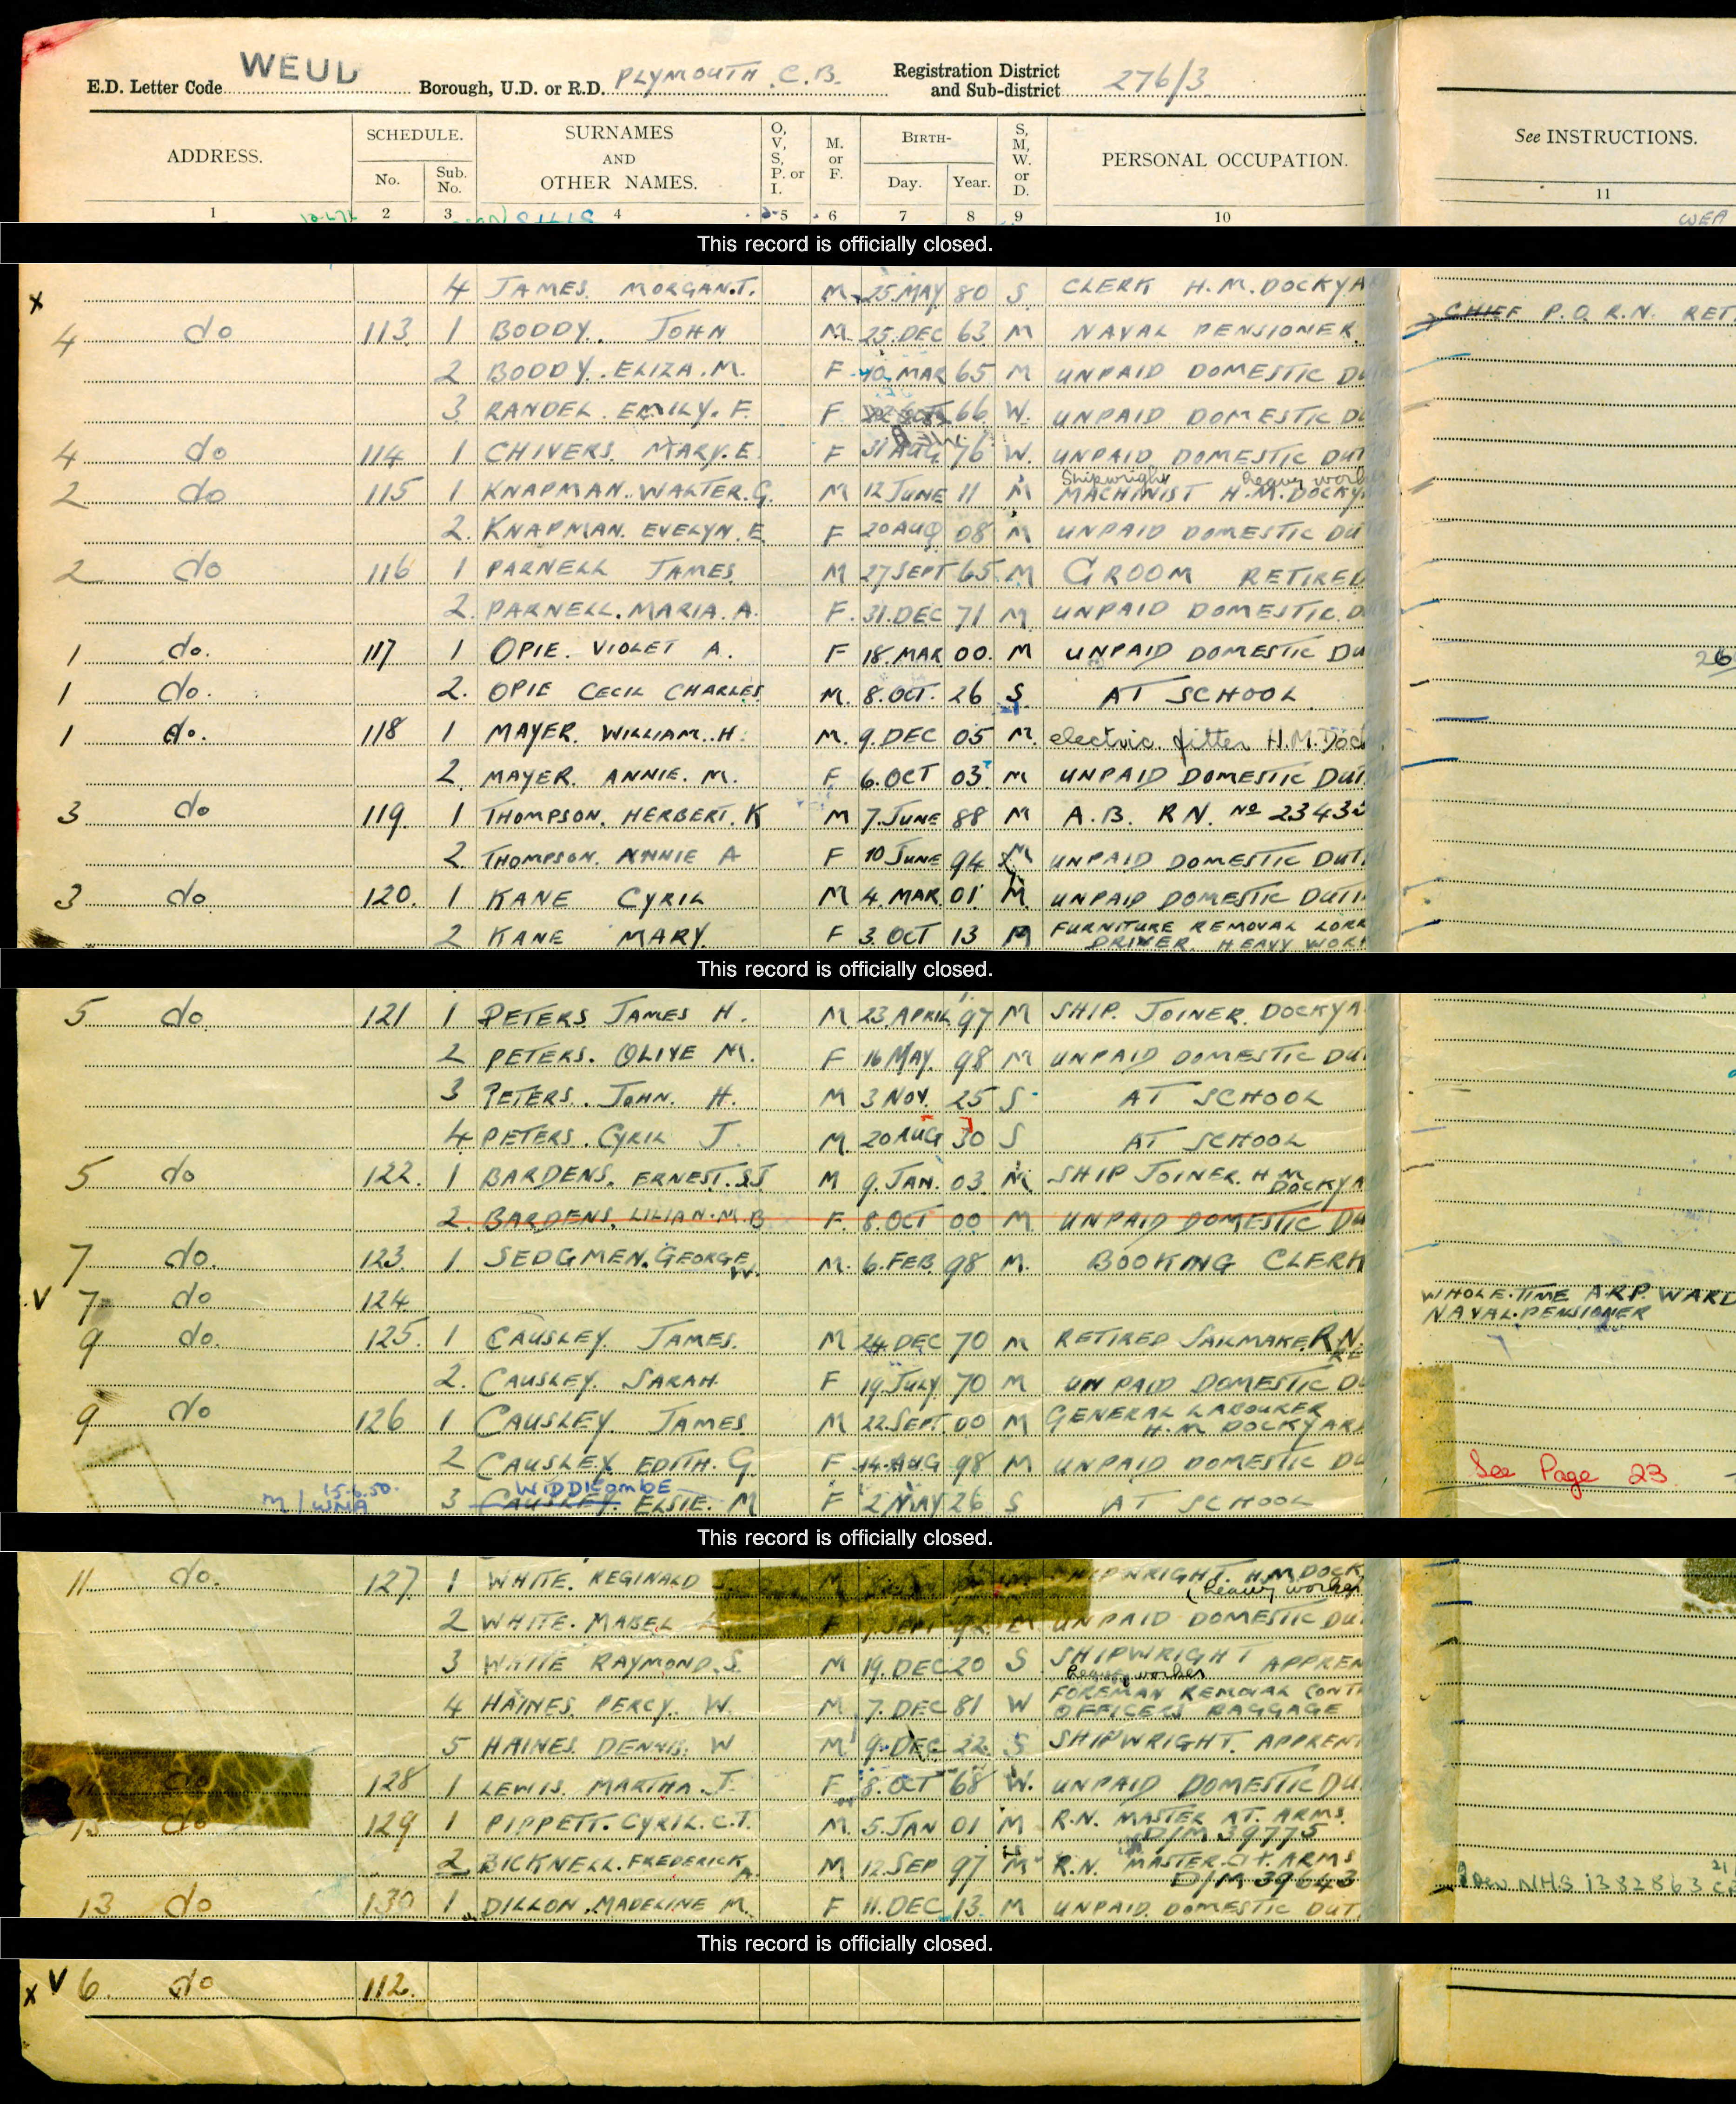 E.D. Letter Code WEUD Borough, U.D. or R.D. PLYMOUTH C.B. Registration District and Sub-district 276/3
ADDRESS. SCHEDULE. No. Sub. No. SURNAMES AND OTHER NAMES. O, V, S, P. or I. M. or F. BIRTH- Day. Year. S, M, W. or D. PERSONAL OCCUPATION. See INSTRUCTIONS.
1 2 3 4 5 6 7 8 9 10 11
WEA
This record is officially closed.
x 4 JAMES MORGAN.T. M 25 MAY 80 S CLERK H.M. DOCKYA
4 do 113 1 BODDY. JOHN M 25 DEC 63 M NAVAL PENSIONER. CHIEF P.O. R.N. RET.
2 BODDY. ELIZA. M. F 10 MAR 65 M UNPAID DOMESTIC DU
3 RANDEL. EMILY. F. F 66 W. UNPAID DOMESTIC DU
4 do 114 1 CHIVERS. MARY. E. F 31 AUG 76 W. UNPAID DOMESTIC DUT
2 do 115 1 KNAPMAN. WALTER. G. M 12 JUNE 11 M Shipwright heavy work
MACHINIST H.M. DOCKY
2. KNAPMAN. EVELYN. E. F 20 AUG 08 M UNPAID DOMESTIC DU
2 do 116 1 PARNELL JAMES M 27 SEPT 65 M GROOM RETIRED
2. PARNELL. MARIA. A. F. 31. DEC 71 M UNPAID DOMESTIC. D
1 do. 117 1 OPIE. VIOLET A. F 18. MAR 00. M UNPAID DOMESTIC DU 26
1 do. 2. OPIE CECIL CHARLES M. 8. OCT. 26 S AT SCHOOL
1 do. 118 1 MAYER. WILLIAM. H. M. 9. DEC 05 M. electric. fitter H.M. Dock
2 MAYER. ANNIE. M. F 6. OCT 03 M UNPAID DOMESTIC DUT
3 do 119 1 THOMPSON. HERBERT. K M 7. JUNE 88 M A.B. R.N. No 23432
2. THOMPSON. ANNIE A F 10 JUNE 94 M UNPAID DOMESTIC DUT
3 do 120. 1 KANE CYRIL M 4. MAR. 01 M. UNPAID DOMESTIC DUTI
2 KANE MARY. F 3. OCT 13 M FURNITURE REMOVAL LORR
DRIVER. HEAVY WORK
This record is officially closed.
5 do 121 1 PETERS JAMES H. M 23. APRIL 97 M SHIP. JOINER. DOCKYA
2 PETERS. OLIVE M. F 16 MAY. 98 M UNPAID DOMESTIC DU
3 PETERS. JOHN. H. M 3 NOV. 25 S AT SCHOOL
4 PETERS. CYRIL J. M. 20 AUG 30 S AT SCHOOL
5 do 122. 1 BARDENS. ERNEST. S.J M 9. JAN. 03 M SHIP JOINER. H.M. DOCKYA
2. BARDENS. LILIAN. M. B F. 8. OCT 00 M. UNPAID DOMESTIC DU
7 do. 123 1. SEDGMEN. GEORGE W. M. 6. FEB. 98 M. BOOKING CLERK
V 7 do 124 WHOLE-TIME A.R.P. WARD
NAVAL-PENSIONER
9 do. 125. 1 CAUSLEY. JAMES. M 24. DEC 70 M RETIRED SAILMAKER R.N.
2. CAUSLEY. SARAH. F 19. JULY 70 M UNPAID DOMESTIC DU
9 do 126 1 CAUSLEY. JAMES M 22. SEPT. 00 M GENERAL LABOURER
H.M DOCKYARD
2 CAUSLEY EDITH. G F 14. AUG 98 M UNPAID DOMESTIC DU See Page 23
M/WNA 15.6.50. WIDDICOMBE
3 CAUSLEY. ELSIE. M F 2 MAY 26 S AT SCHOOL
This record is officially closed.
11 do. 127 1 WHITE. REGINALD M SHIPWRIGHT. H.M DOCK
(heavy worker
2 WHITE. MABEL F 7. SEPT 92 M UNPAID DOMESTIC DU
3 WHITE RAYMOND. S. M 19. DEC 20 S SHIPWRIGHT APPREN
heavy worker
4 HAINES. PERCY. W. M 7. DEC 81 W FOREMAN REMOVAL CONT
OFFICERS BAGGAGE
5 HAINES. DENNIS. W M 9. DEC 22. S SHIPWRIGHT. APPRENT
do 128 1 LEWIS. MARTHA. J. F 8. OCT 68 W. UNPAID DOMESTIC DU
13 do 129 1 PIPPETT. CYRIL. C.T. M. 5. JAN 01 M R.N. MASTER AT. ARMS.
D/M 39775
2 BICKNELL. FREDERICK A. M 12. SEP 97 M R.N. MASTER. AT. ARMS
D/M 39643
NHS 1382863
13 do 130 1 DILLON. MADELINE M. F 11. DEC 13. M UNPAID. DOMESTIC DUT
This record is officially closed.
x V 6. do 112.